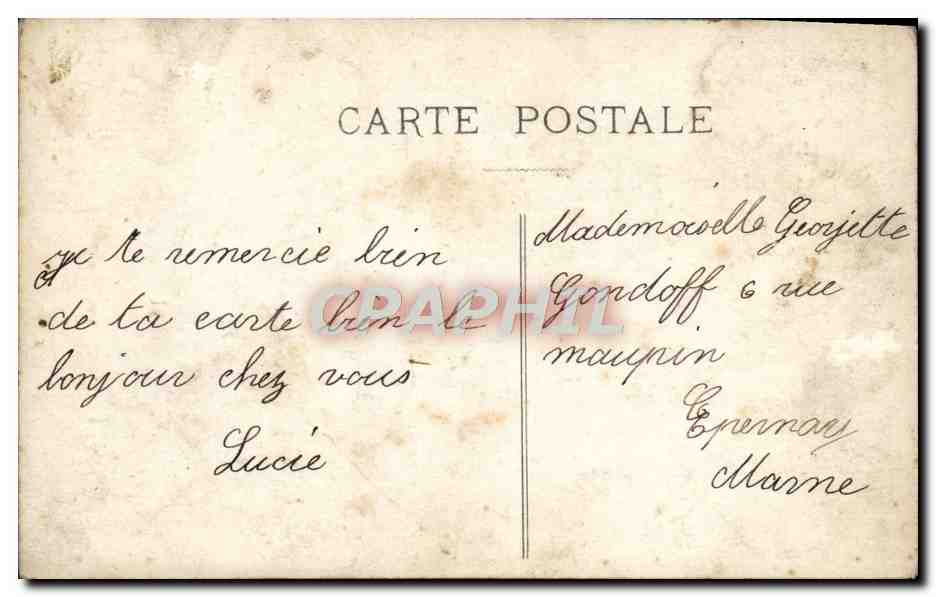 CARTE POSTALE
je te remercie bien
de ta carte bien le
bonjour chez vous
Lucie
Mademoiselle Georjette
Gondoff 6 rue
maupin
Epernay
Marne
CPAPHIL